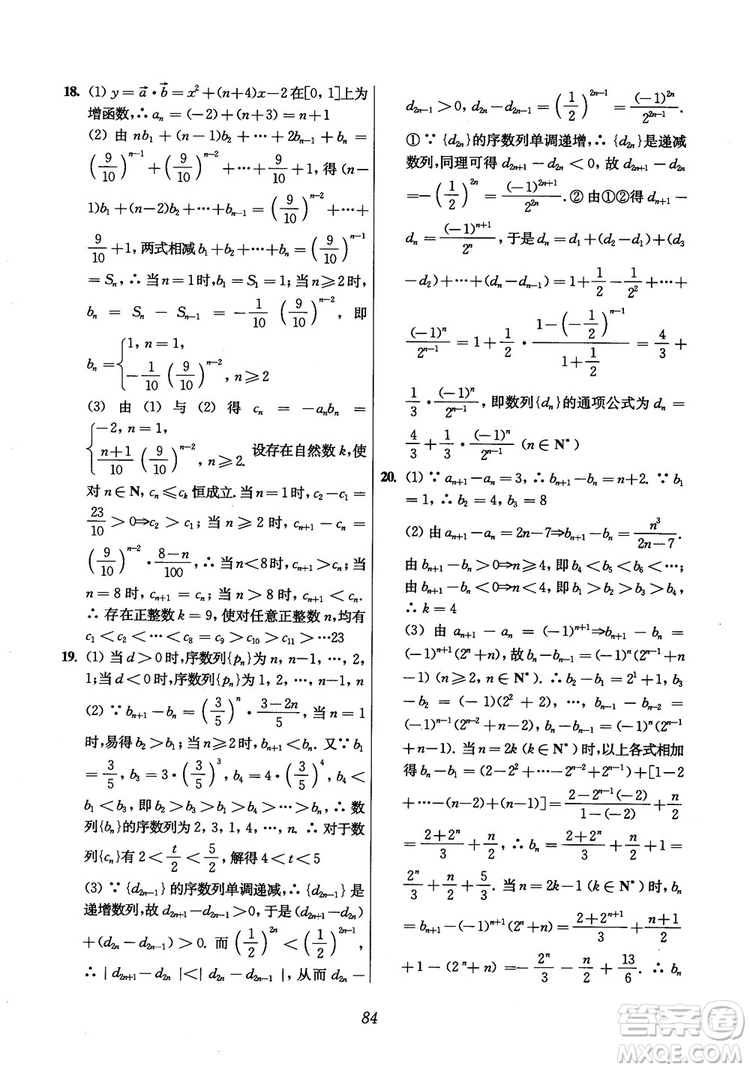 18. (1) y = a⃗ · b⃗ = x² + (n+4)x − 2 在[0, 1]上为
增函数, ∴ aₙ = (−2) + (n+3) = n+1
(2) 由 nb₁ + (n−1)b₂ + ⋯ + 2bₙ₋₁ + bₙ =
(9/10)ⁿ⁻¹ + (9/10)ⁿ⁻² + ⋯ + 9/10 + 1, 得 (n−
1)b₁ + (n−2)b₂ + ⋯ + bₙ₋₁ = (9/10)ⁿ⁻² + ⋯ +
9/10 + 1, 两式相减 b₁ + b₂ + ⋯ + bₙ = (9/10)ⁿ⁻¹
= Sₙ, ∴ 当 n = 1 时, b₁ = S₁ = 1; 当 n ≥ 2 时,
bₙ = Sₙ − Sₙ₋₁ = −1/10 (9/10)ⁿ⁻², 即
bₙ = { 1, n = 1, −1/10 (9/10)ⁿ⁻², n ≥ 2
(3) 由 (1) 与 (2) 得 cₙ = −aₙbₙ =
{ −2, n = 1, (n+1)/10 (9/10)ⁿ⁻², n ≥ 2. 设存在自然数 k, 使
对 n ∈ N, cₙ ≤ cₖ 恒成立. 当 n = 1 时, c₂ − c₁ =
23/10 > 0 ⇒ c₂ > c₁; 当 n ≥ 2 时, cₙ₊₁ − cₙ =
(9/10)ⁿ⁻² · (8−n)/100, ∴ 当 n < 8 时, cₙ₊₁ > cₙ; 当
n = 8 时, cₙ₊₁ = cₙ; 当 n > 8 时, cₙ₊₁ < cₙ.
∴ 存在正整数 k = 9, 使对任意正整数 n, 均有
c₁ < c₂ < ⋯ < c₈ = c₉ > c₁₀ > c₁₁ > ⋯23
19. (1) 当 d > 0 时, 序数列{pₙ}为 n, n−1, ⋯, 2,
1; 当 d < 0 时, 序数列{pₙ}为 1, 2, ⋯, n−1, n
(2) ∵ bₙ₊₁ − bₙ = (3/5)ⁿ · (3−2n)/5, 当 n = 1
时, 易得 b₂ > b₁, 当 n ≥ 2 时, bₙ₊₁ < bₙ. 又∵ b₁
= 3/5, b₃ = 3·(3/5)³, b₄ = 4·(3/5)⁴, b₄ <
b₁ < b₃, 即 b₂ > b₃ > b₁ > b₄ > ⋯ > bₙ, ∴ 数
列{bₙ}的序数列为 2, 3, 1, 4, ⋯, n. ∴ 对于数
列{cₙ}有 2 < t/2 < 5/2, 解得 4 < t < 5
(3) ∵ {d₂ₙ₋₁} 的序数列单调递减, ∴ {d₂ₙ₋₁} 是
递增数列, 故 d₂ₙ₊₁ − d₂ₙ₋₁ > 0, 于是 (d₂ₙ₊₁ − d₂ₙ)
+ (d₂ₙ − d₂ₙ₋₁) > 0. 而 (1/2)²ⁿ < (1/2)²ⁿ⁻¹,
∴ |d₂ₙ₊₁ − d₂ₙ| < |d₂ₙ − d₂ₙ₋₁|, 从而 d₂ₙ −
d₂ₙ₋₁ > 0, d₂ₙ − d₂ₙ₋₁ = (1/2)²ⁿ⁻¹ = (−1)²ⁿ/2²ⁿ⁻¹.
① ∵ {d₂ₙ}的序数列单调递增, ∴ {d₂ₙ}是递减
数列, 同理可得 d₂ₙ₊₁ − d₂ₙ < 0, 故 d₂ₙ₊₁ − d₂ₙ
= −(1/2)²ⁿ = (−1)²ⁿ⁺¹/2²ⁿ. ② 由①②得 dₙ₊₁ −
dₙ = (−1)ⁿ⁺¹/2ⁿ, 于是 dₙ = d₁ + (d₂ − d₁) + (d₃
− d₂) + ⋯ + (dₙ − dₙ₋₁) = 1 + 1/2 − 1/2² + ⋯ +
(−1)ⁿ/2ⁿ⁻¹ = 1 + 1/2 · (1 − (−1/2)ⁿ⁻¹)/(1 + 1/2) = 4/3 +
1/3 · (−1)ⁿ/2ⁿ⁻¹, 即数列{dₙ}的通项公式为 dₙ =
4/3 + 1/3 · (−1)ⁿ/2ⁿ⁻¹ (n ∈ N*)
20. (1) ∵ aₙ₊₁ − aₙ = 3, ∴ bₙ₊₁ − bₙ = n+2. ∵ b₁
= 1, ∴ b₂ = 4, b₃ = 8
(2) 由 aₙ₊₁ − aₙ = 2n−7 ⇒ bₙ₊₁ − bₙ = n³/(2n−7).
由 bₙ₊₁ − bₙ > 0 ⇒ n ≥ 4, 即 b₄ < b₅ < b₆ < ⋯;
由 bₙ₊₁ − bₙ < 0 ⇒ n ≤ 3, 即 b₁ > b₂ > b₃ > b₄,
∴ k = 4
(3) 由 aₙ₊₁ − aₙ = (−1)ⁿ⁺¹ ⇒ bₙ₊₁ − bₙ =
(−1)ⁿ⁺¹(2ⁿ + n). 故 bₙ − bₙ₋₁ = (−1)ⁿ(2ⁿ⁻¹ + n
− 1) (n ≥ 2, n ∈ N*). ∴ b₂ − b₁ = 2¹ + 1, b₃
− b₂ = (−1)(2² + 2), ⋯, bₙ₋₁ − bₙ₋₂ =
(−1)ⁿ⁻¹(2ⁿ⁻² + n − 2), bₙ − bₙ₋₁ = (−1)ⁿ(2ⁿ⁻¹
+ n − 1). 当 n = 2k (k ∈ N*) 时, 以上各式相加
得 bₙ − b₁ = (2 − 2² + ⋯ − 2ⁿ⁻² + 2ⁿ⁻¹) + [1−2
+ ⋯ − (n−2) + (n−1)] = (2 − 2ⁿ⁻¹(−2))/(1 − (−2)) + n/2
= (2+2ⁿ)/3 + n/2, ∴ bₙ = (2+2ⁿ)/3 + n/2 + 1 =
2ⁿ/3 + n/2 + 5/3. 当 n = 2k−1 (k ∈ N*) 时, bₙ
= bₙ₊₁ − (−1)ⁿ⁺¹(2ⁿ + n) = (2+2ⁿ⁺¹)/3 + (n+1)/2
+ 1 − (2ⁿ + n) = −2ⁿ/3 − n/2 + 13/6. ∴ bₙ
84
答案圈
MXQE.COM